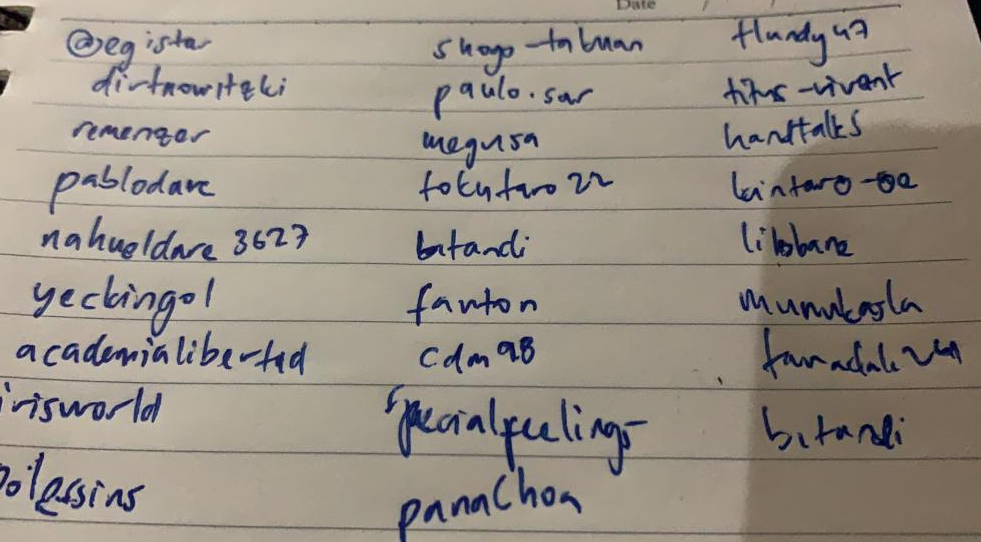 Date / /
@egistar
dirtnowitzki
remenzor
pablodare
nahueldare 3627
yeckingol
academialibertad
irisworld
shogo-tabuan
paulo.sar
megusa
tokutaro 22
batandi
fanton
cdm98
specialfeelings
panachoa
flundy47
titus-vivant
handtalks
kintaro-oe
bitandi